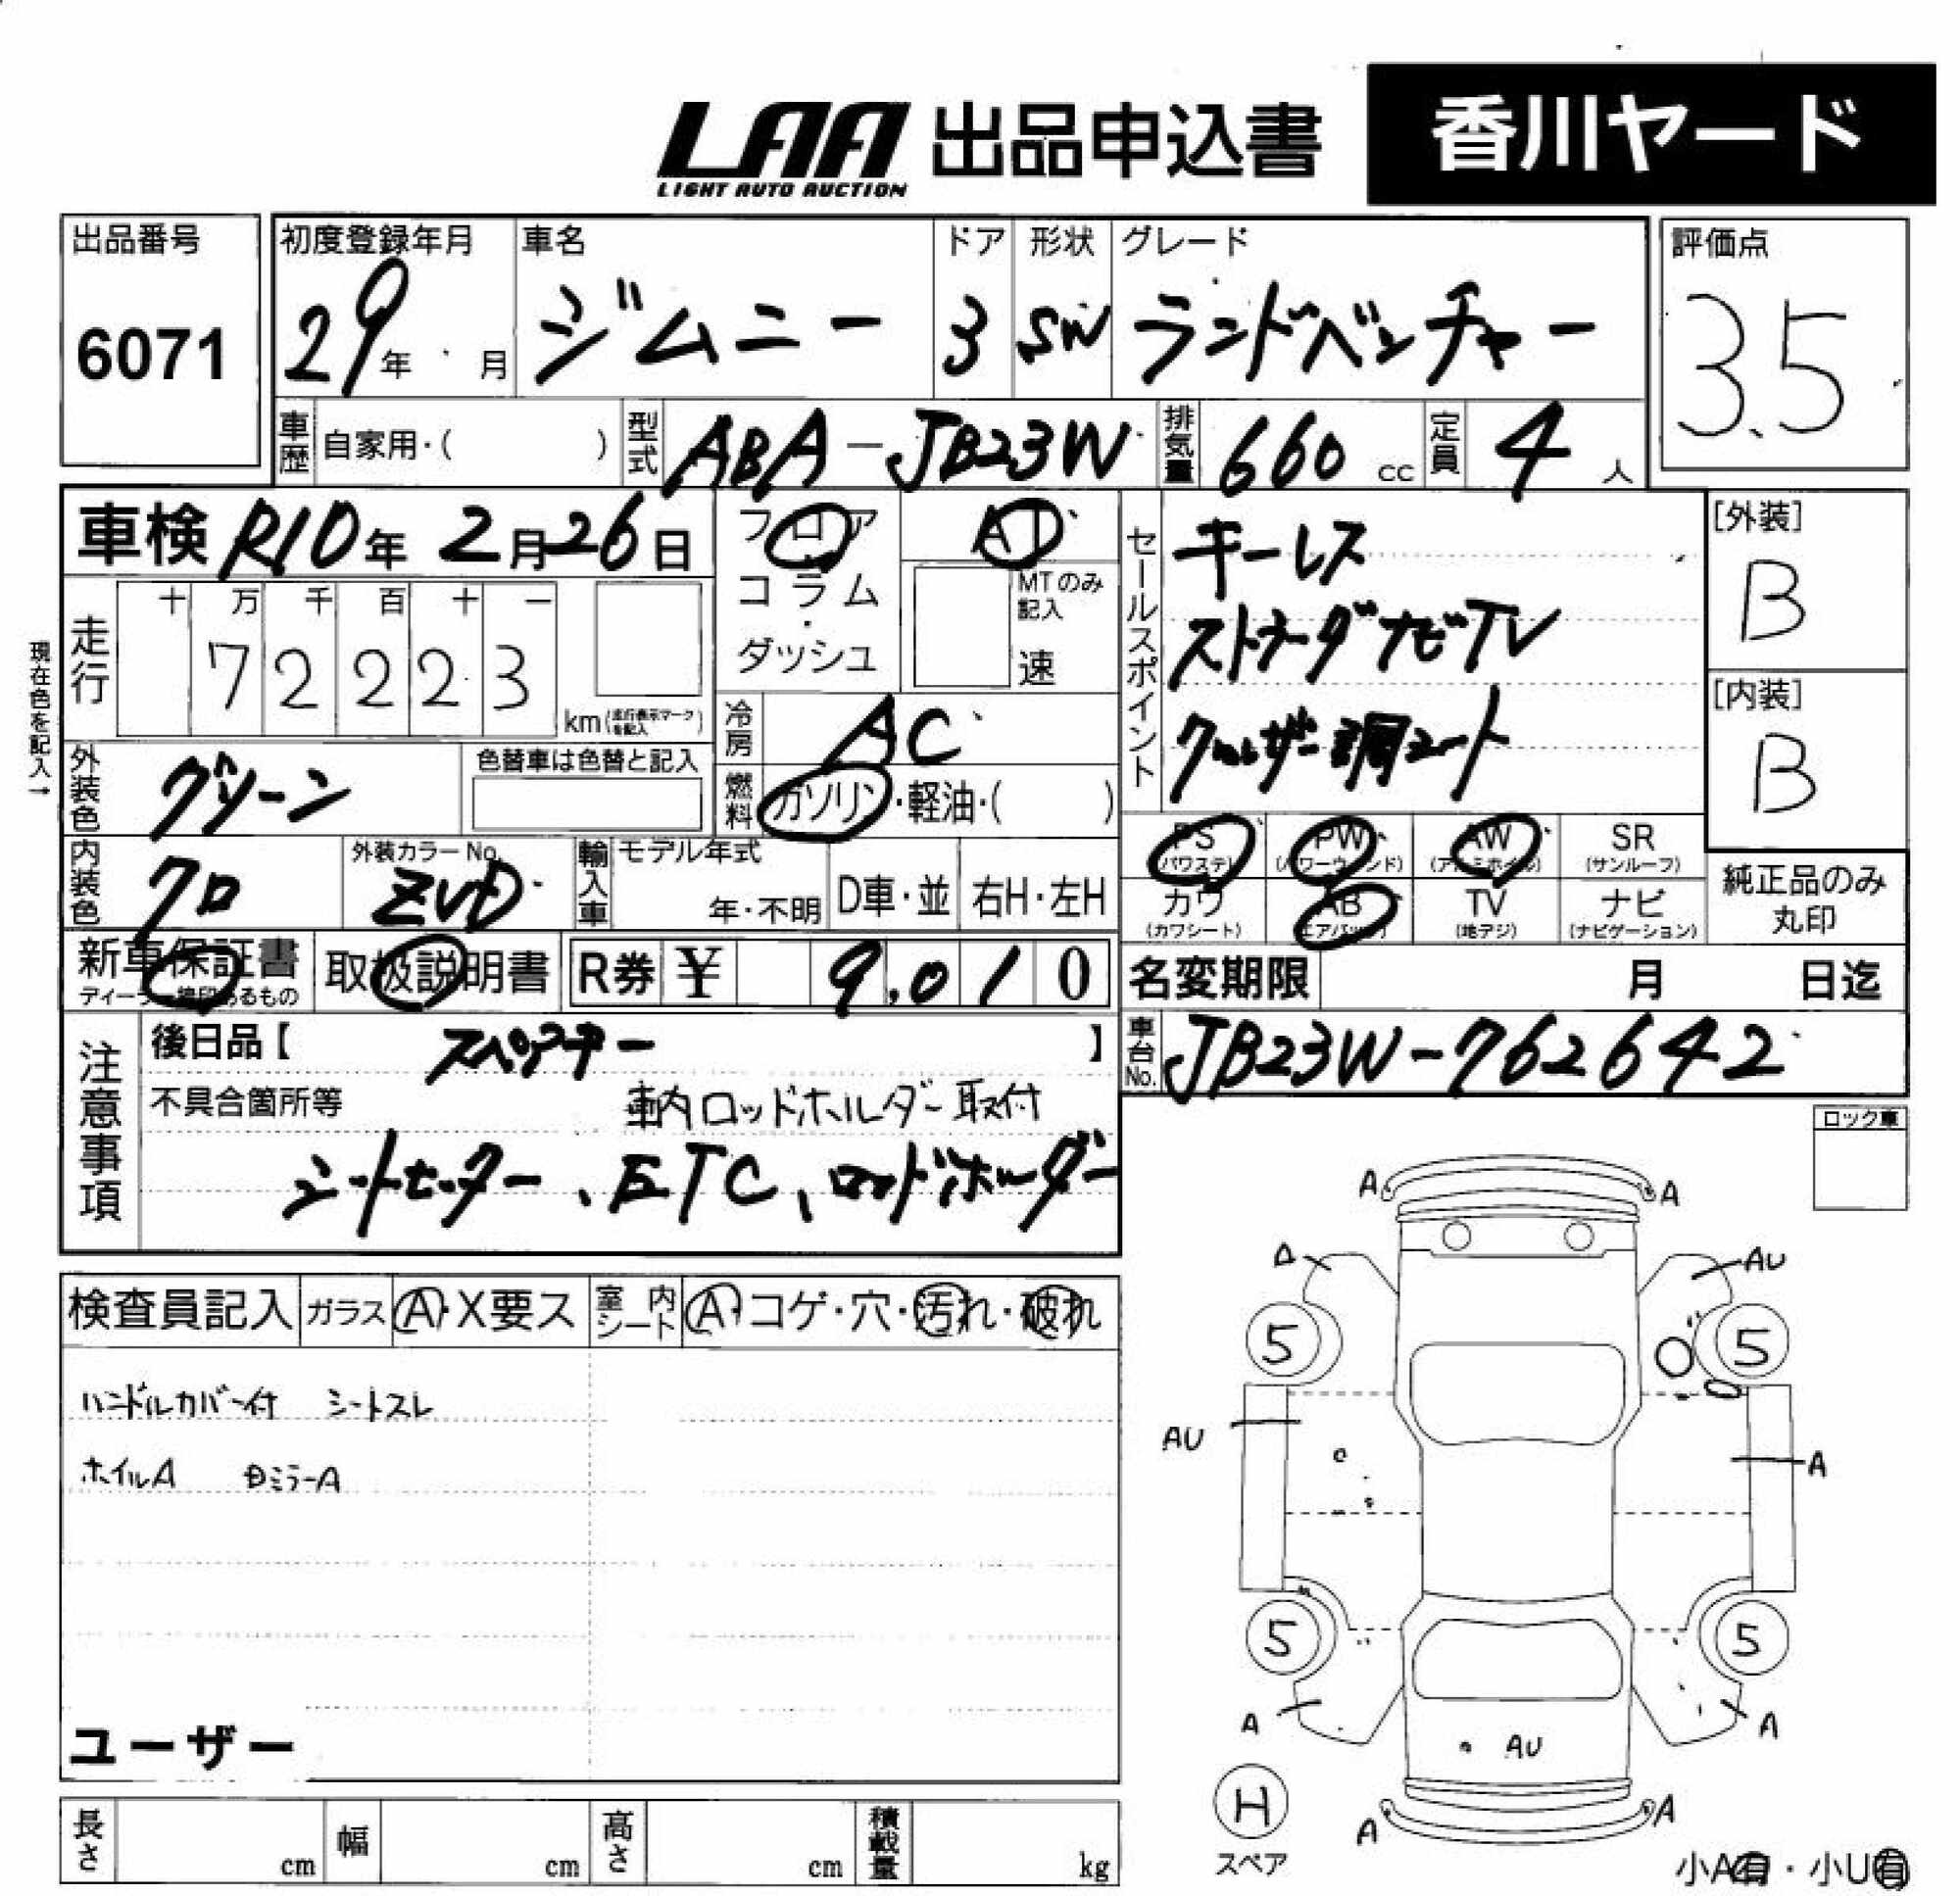 LAA 出品申込書 香川ヤード
LIGHT AUTO AUCTION
出品番号
6071
初度登録年月
29年 月
車名
ジムニー
ドア
3
形状
SW
グレード
ランドベンチャー
評価点
3.5
車歴 自家用・( )
型式 ABA-JB23W
排気量 660 cc
定員 4 人
車検 R10年 2月26日
フロア
・
コラム
・
ダッシュ
AT
MTのみ
記入
速
セールスポイント
キーレス
ストラーダナビTV
クルーザー調シート
[外装]
B
[内装]
B
現在色を記入→
走行
十 万 千 百 十 一
7 2 2 2 3
km (走行表示マークを記入)
冷房 AC
外装色 グリーン
色替車は色替と記入
燃料 ガソリン・軽油・( )
内装色 クロ
外装カラーNo.
ZVD
輸入車
モデル年式
年・不明
D車・並
右H・左H
PS
(パワステ)
PW
(パワーウィンド)
AW
(アルミホイル)
SR
(サンルーフ)
カワ
(カワシート)
AB
(エアバック)
TV
(地デジ)
ナビ
(ナビゲーション)
純正品のみ
丸印
新車保証書
ディーラー捺印あるもの
取扱説明書
R券 ¥ 9,010
名変期限 月 日迄
注意事項
後日品【 スペアキー 】
不具合箇所等
車内ロッドホルダー取付
シートヒーター、ETC、ロッドホルダー
車台No. JB23W-762642
ロック車
検査員記入 ガラス A・X要ス
室内シート A・コゲ・穴・汚れ・破れ
ハンドルカバー付 シートスレ
ホイルA BミラーA
ユーザー
長さ cm
幅 cm
高さ cm
積載量 kg
A A
A AU
5 5
AU A
5 5
A A
AU
H
スペア
A A
小A有・小U有